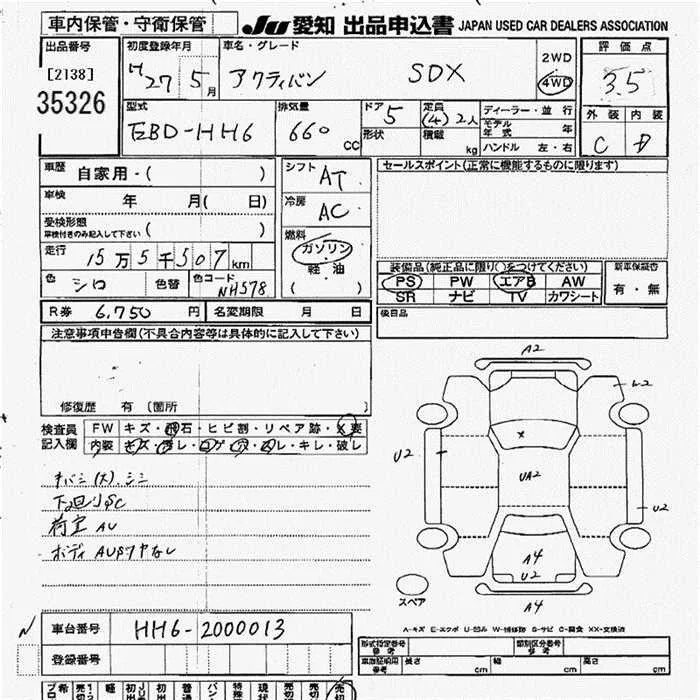 車内保管・守衛保管
JU 愛知 出品申込書 JAPAN USED CAR DEALERS ASSOCIATION
出品番号
[2138]
35326
初度登録年月
H 27 5月
車名・グレード
アクティバン SDX
2WD
4WD
評価点
3.5
外装 内装
C D
型式
EBD-HH6
排気量
660 cc
ドア 5
形状
定員 (4) 2人
積載 kg
ディーラー・並行
モデル年式 年
ハンドル 左・右
車歴 自家用・( )
車検 年 月( 日)
受検形態
車検付きのみ記入して下さい ( )
走行 15万5千507km
色 シロ 色替 色コード NH578
シフト AT
冷房 AC
燃料
ガソリン
軽油
( )
セールスポイント(正常に機能するものに限り)
装備品(純正品に限り○をつけてください)
PS PW エアB AW
SR ナビ TV カワシート
新車保証書
有・無
後日品
R券 6,750円 名変期限 月 日
注意事項申告欄(不具合内容等は具体的に記入して下さい)
修復歴 有 (箇所 )
検査員記入欄
FW キズ・飛石・ヒビ割・リペア跡・X要
内装 キズ・汚レ・コゲ・穴・スレ・キレ・破レ
下回りSC
荷室 AU
A2
W2
U2
X
UA2
U2
A4
U2
A4
スペア
A-キズ E-エクボ U-凹み W-補修跡 S-サビ C-腐食 XX-交換済
車台番号 HH6-2000013
登録番号
形式指定番号 類別区分番号
車庫証明用参考 長さ cm 幅 cm 高さ cm